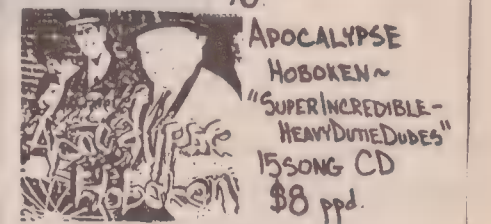 Apocalypse
Hoboken
APOCALYPSE
HOBOKEN~
"SUPERINCREDIBLE-
HEAVYDUTIEDUDES"
15SONG CD
$8 ppd.